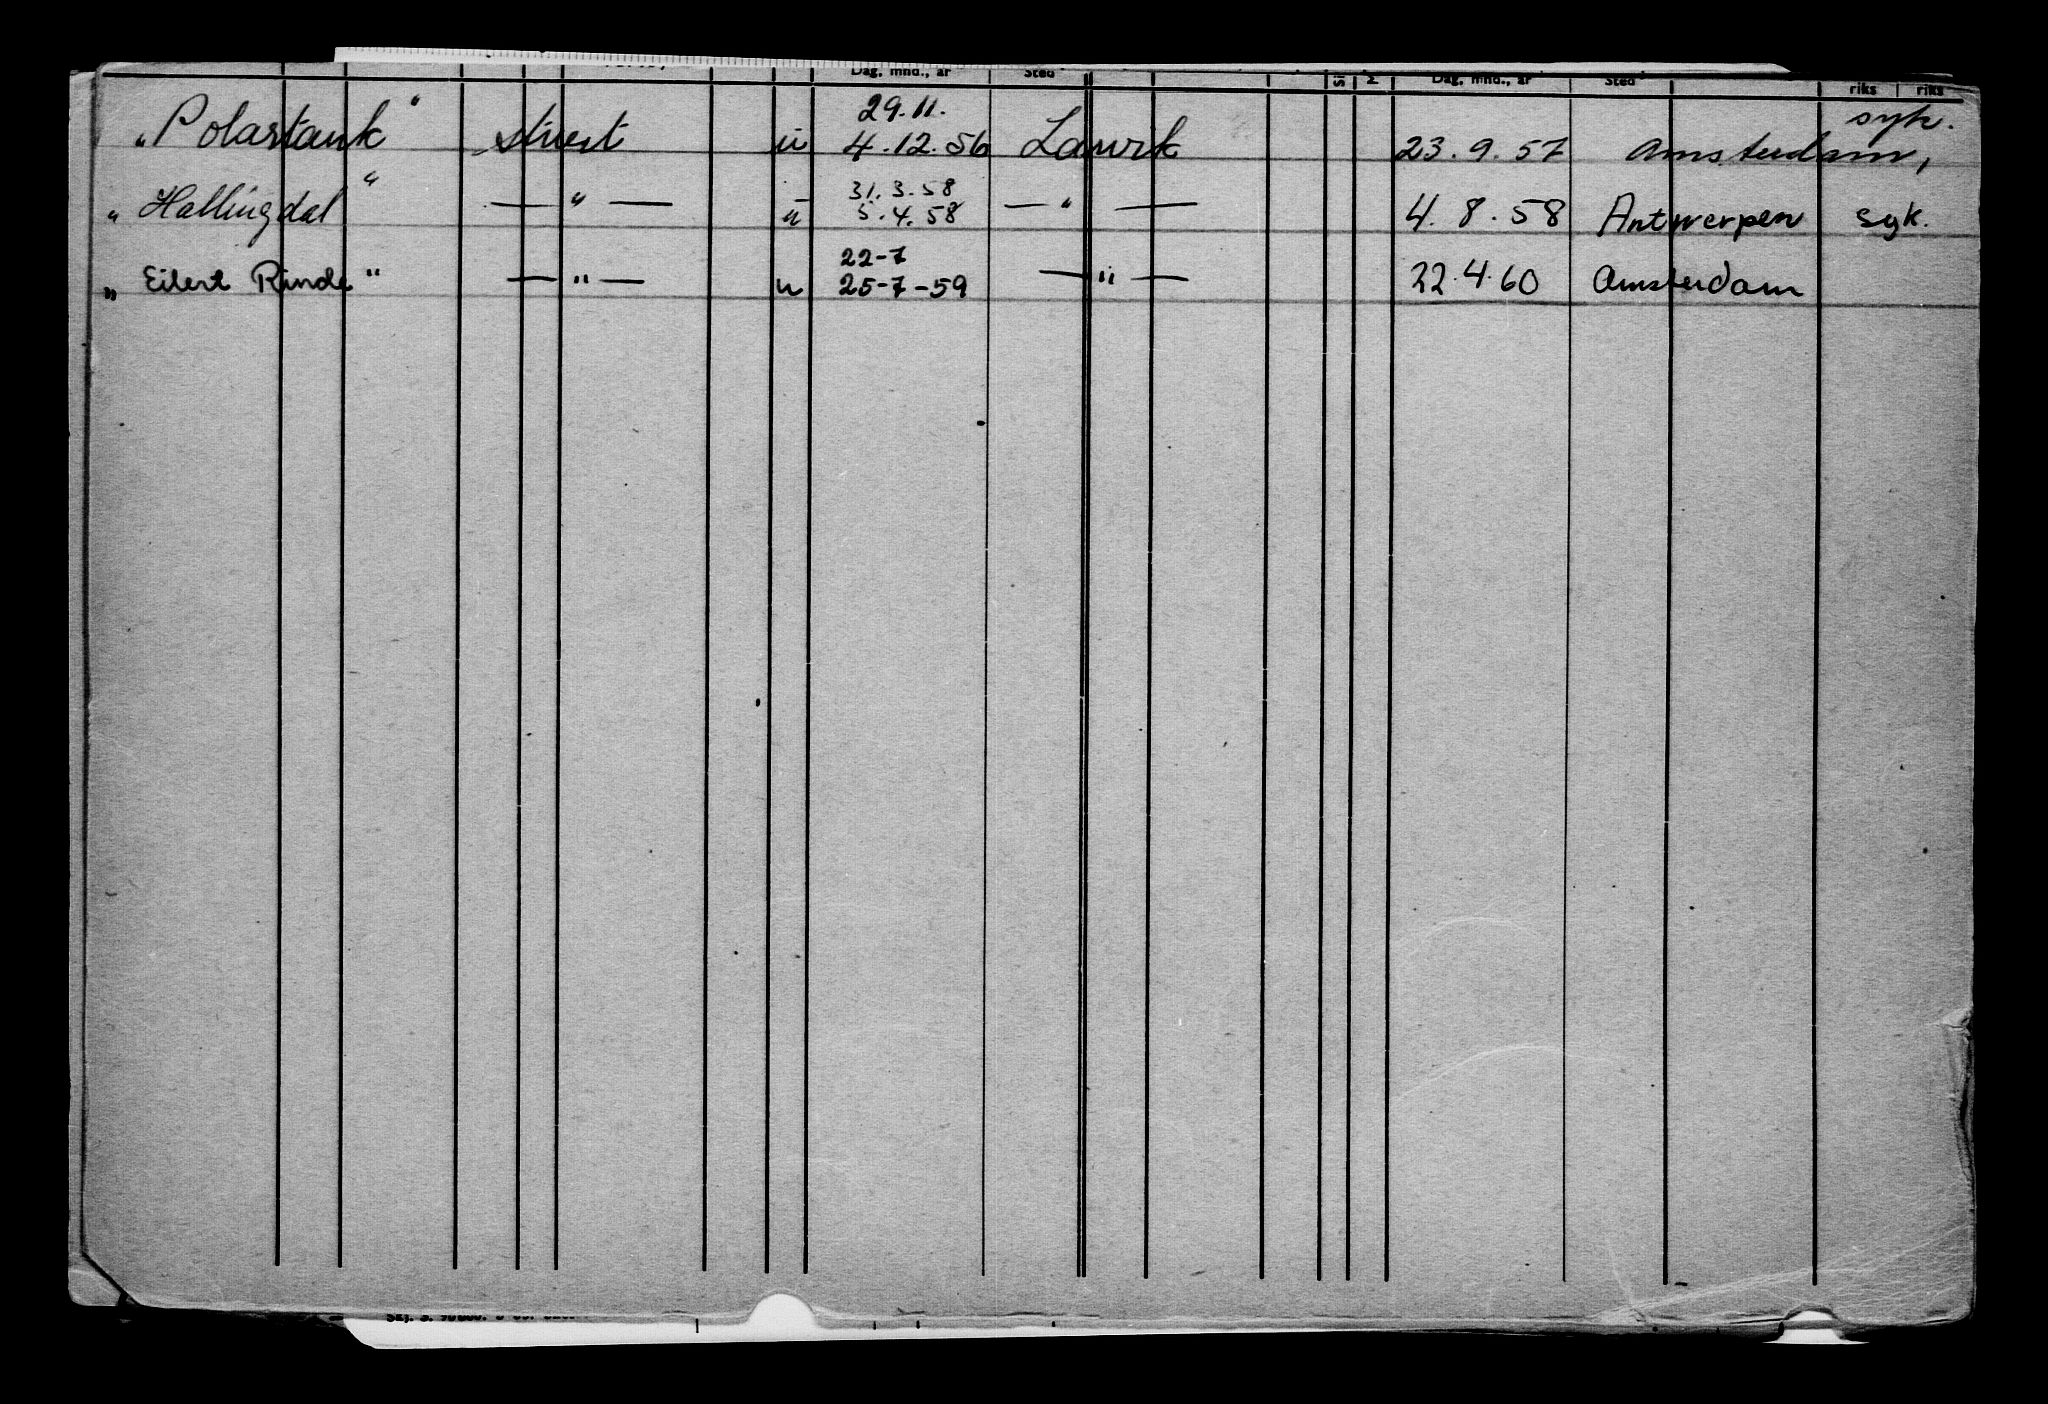 Dag, mnd., år Sted Dag, mnd., år Sted riks riks
29.11. syk.
"Polartank" stuert u 4.12.56 Larvik 23.9.57 Amsterdam,
31.3.58
"Hallingdal" — " — u 5.4.58 — " — 4.8.58 Antwerpen syk.
22-7
"Eilert Rinde" — " — u 25-7-59 — " — 22.4.60 Amsterdam